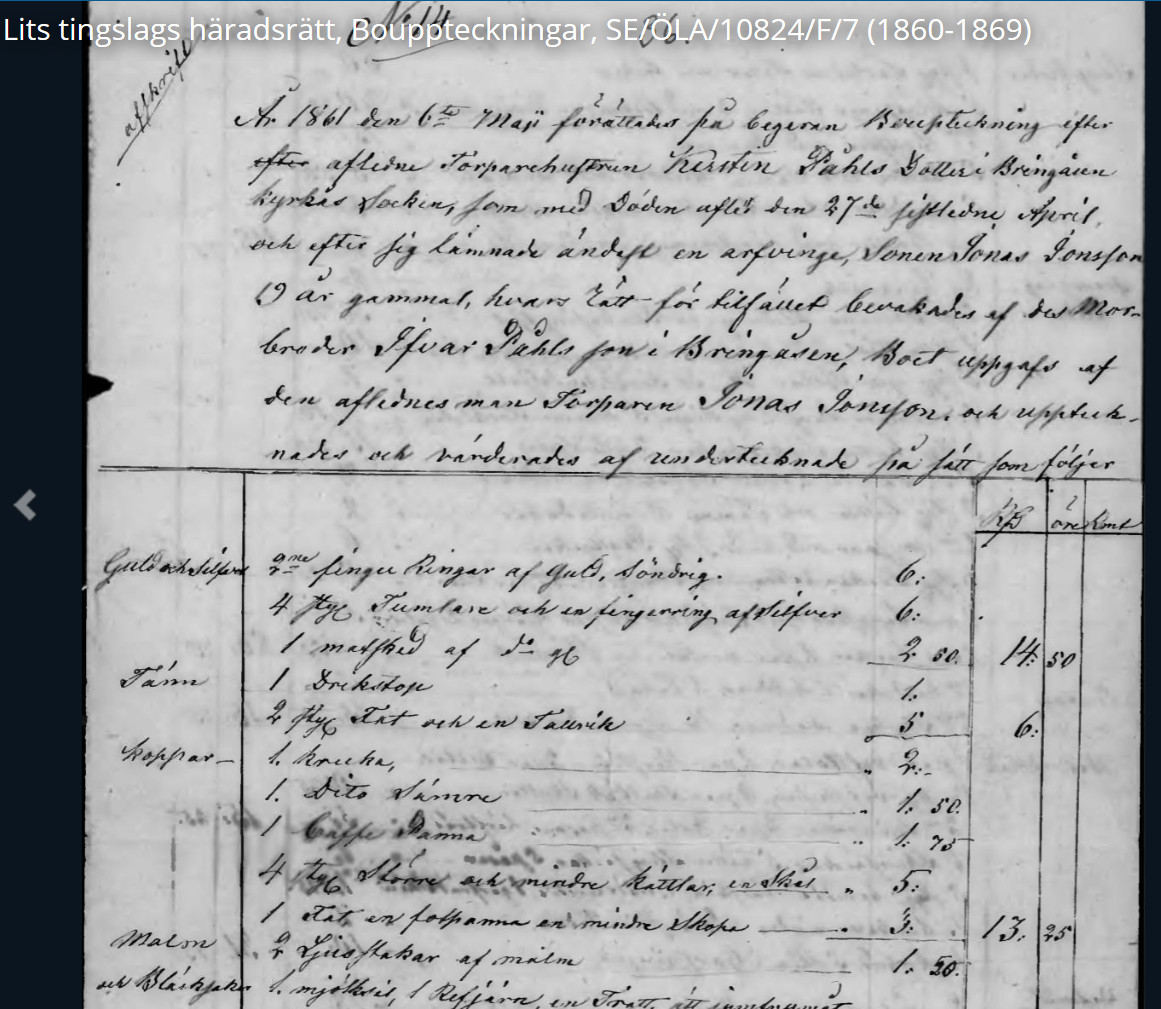 Lits tingslags häradsrätt, Bouppteckningar, SE/ÖLA/10824/F/7 (1860-1869)
No 14 36.
afskrift
År 1861 den 6te Maji förättades på begeran Bouptekning efter
efter aflidne Torparehustrun Kerstin Påhls Dotter i Bringåsen
Kyrkås Socken, som med Döden aflidt den 27de sistledne April,
och efter sig lämnade åndast en arfvinge, Sonen Jonas Jonsson
19 år gammal, hvars rätt för tilfället bevakades af des Mor-
broder Ifvar Påhls son i Bringåsen, Boet uppgafs af
den aflednes man Torparen Jonas Jonsson, och uppteck-
nades och värderades af undertecknade på sätt som följer
öre Rmt
Guld och Silfver 2ne finger Ringar af Guld, söndrig. 6:
4 styc Tumlare och en fingerring af Silfver 6:
1 matsked af do 2 50. 14: 50
Tänn 1 Drikstop 1:
2 styc Fat och en Tallrik 5 6:
Koppar 1. Krucka, " 2:-
1. Dito Sämre " 1: 50.
1 Caffe Panna " 1: 75
4 styc Större och mindre Kättlar, en Skål " 5:
1 Fat en fotpanna en mindre Skopa " 3: 13: 25
Malm 2 Ljusstakar af malm 1: 20.
och Bläcksaker 1. mjölksil, 1 Refjärn, en Tratt, ått